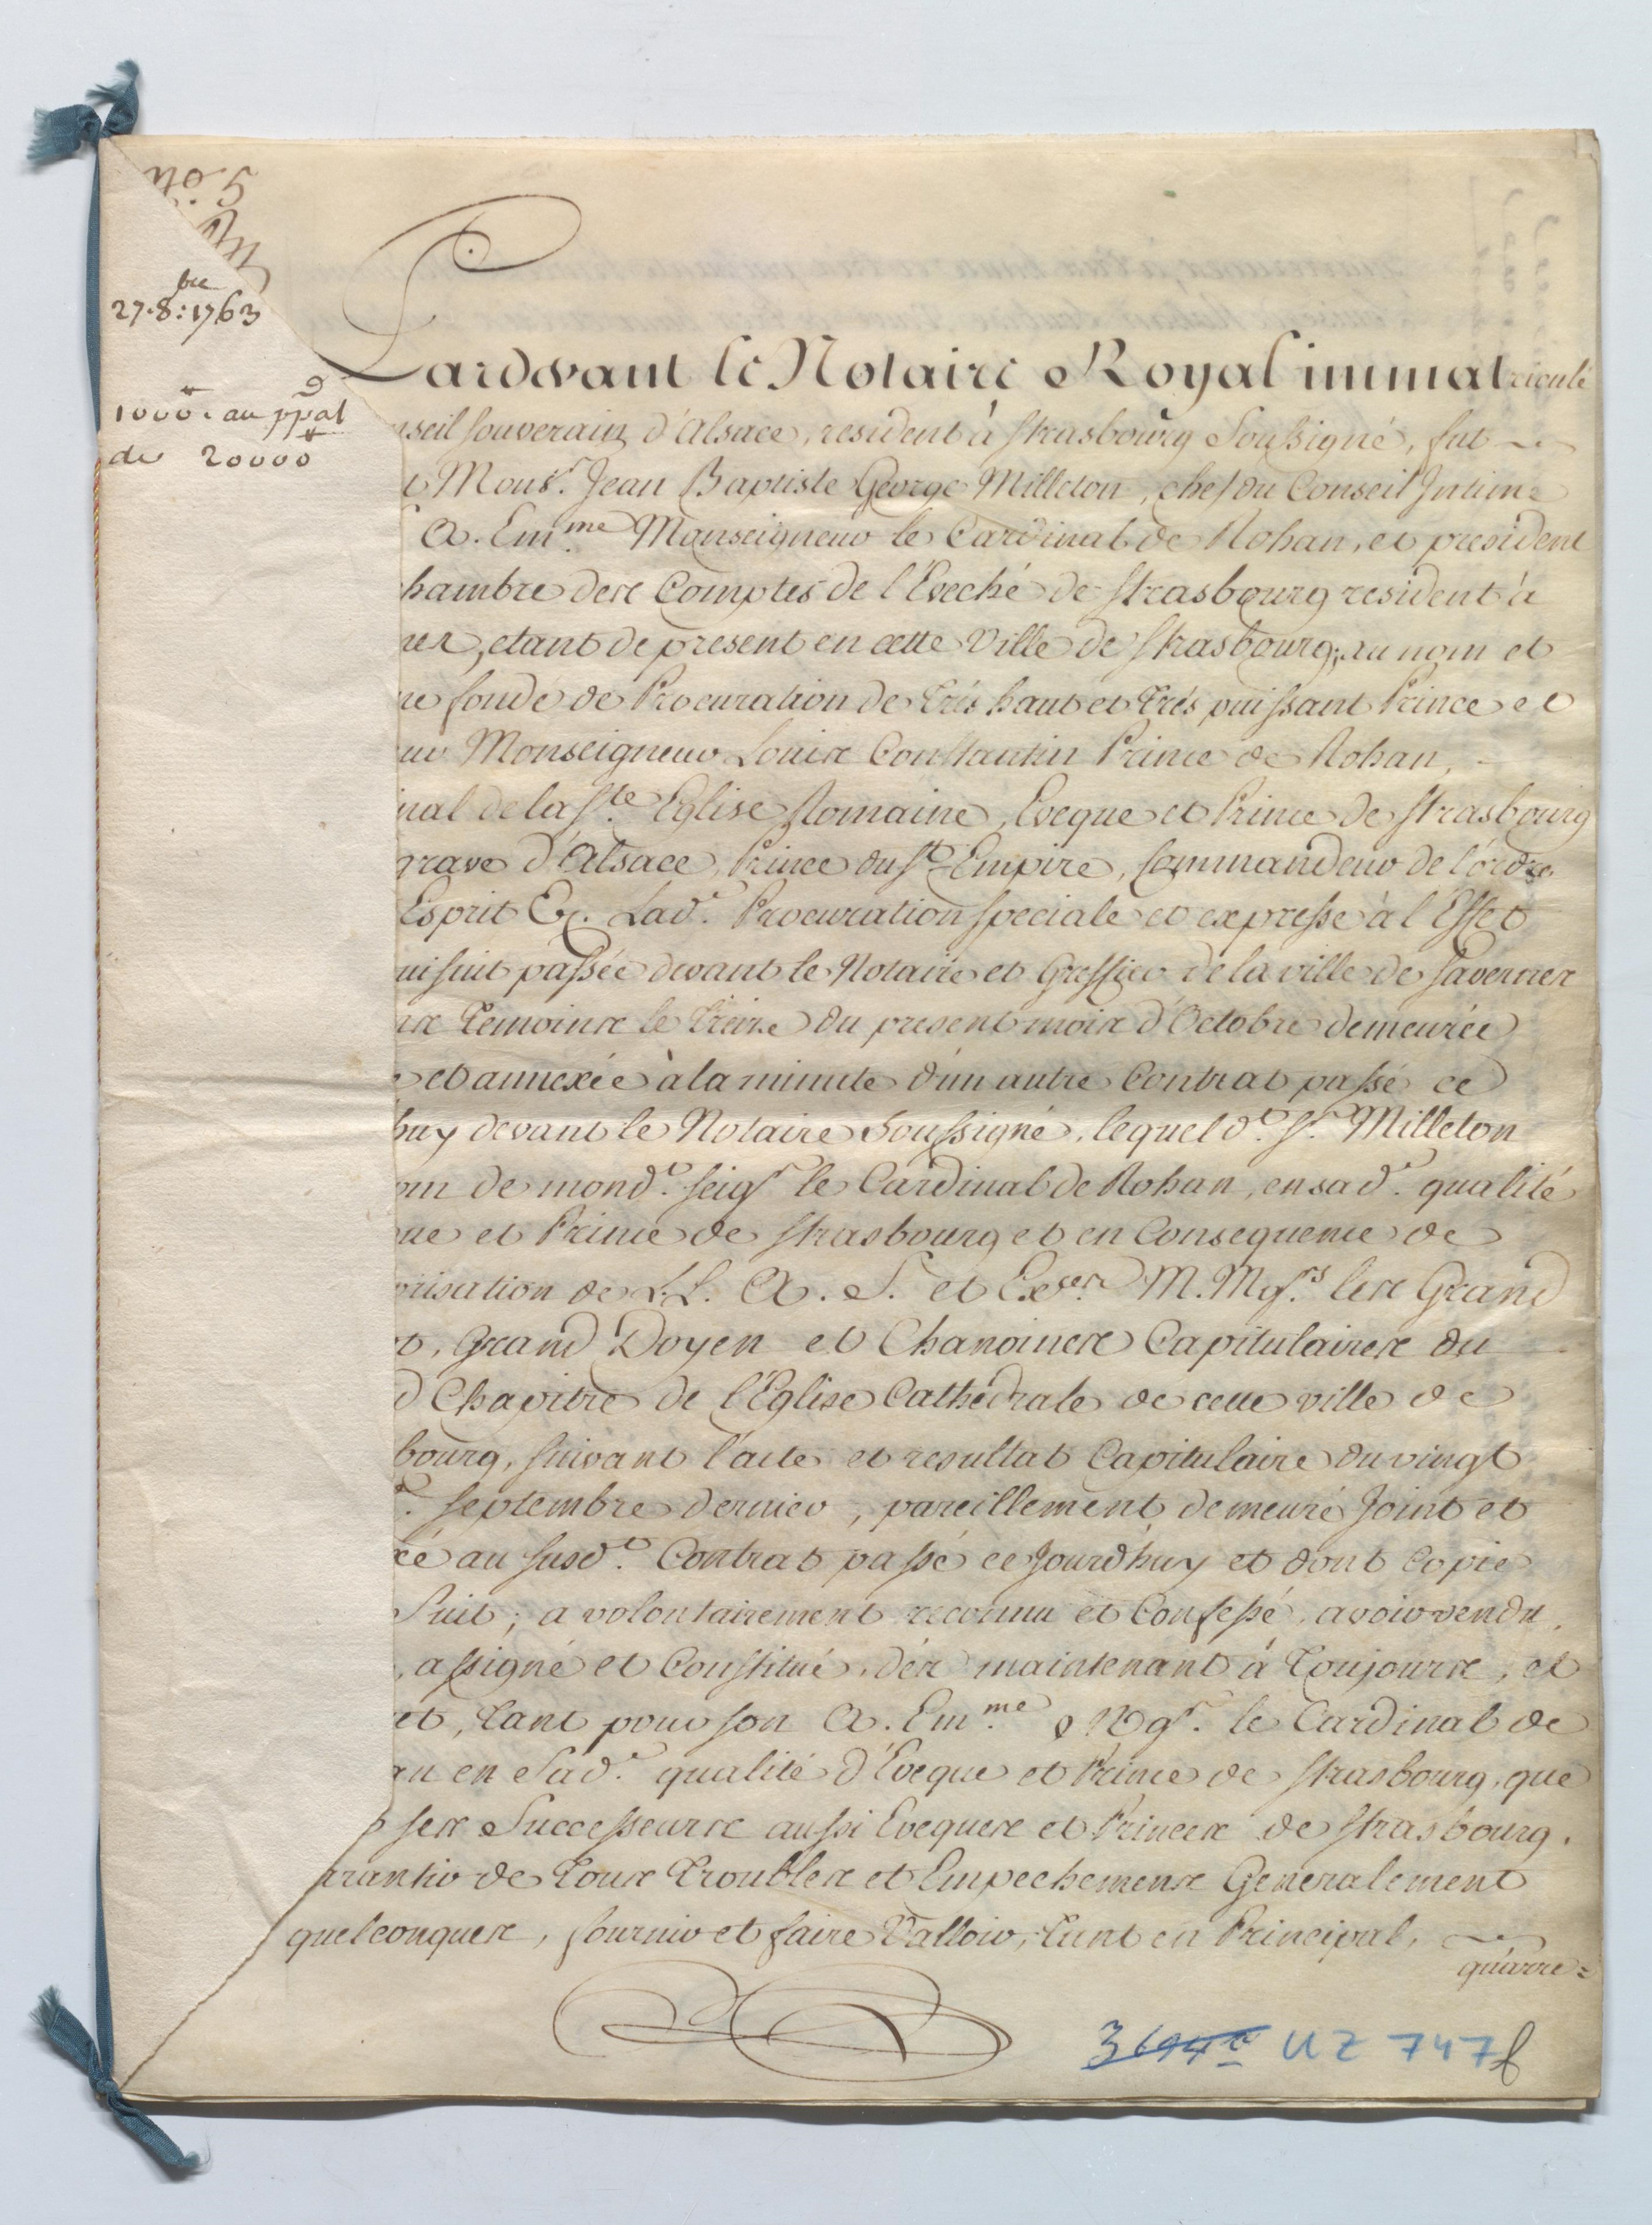 27. 8.bre 1763
1000 . au ppal
de 20000
Pardevant le Notaire Royal immatriculé
nseil souverain d'Alsace, resident à Strasbourg Soussigné, fut
t Monsr. Jean Baptiste George Milleton, chef du Conseil Intime
A. Em.me Monseigneur le Cardinal de Rohan, et president
hambre des Comptes de l'Eveché de Strasbourg resident à
nes, etant de present en cette Ville de Strasbourg, au nom et
ne fondé de Procuration de trés haut et trés puissant Prince et
ur Monseigneur Louis Constantin Prince de Rohan,
nal de la Ste. Eglise Romaine, Eveque et Prince de Strasbourg
grave d'Alsace, Prince du St. Empire, Commandeur de l'ordre
Esprit &c. Lad.e Procuration speciale et expresse à l'Effet
ui suit passée devant le Notaire et Greffier de la ville de Savernes
ns Temoins le treize du present mois d'Octobre demeurée
e et annexée à la minute d'un autre Contrat passé ce
huy devant le Notaire Soussigné, lequel d.t Sr. Milleton
om de mond.t seigr le Cardinal de Rohan, en sad.e qualité
ue et Prince de Strasbourg et en Consequence de
orisation de L.L. A. S. et Exces. M. Mgrs. les Grand
t, Grand Doyen et Chanoines Capitulaires du
d Chapitre de l'Eglise Cathedrale de cette ville de
bourg, suivant l'acte et resultat Capitulaire du vingt
. Septembre dernier, pareillement demeuré Joint et
xé au susd.t Contrat passé ce Jourd'huy et dont Copie
Suit; a volontairement reconnu et Confessé avoir vendu,
, assigné et Constitué, dés maintenant à toujours, et
et, tant pour son A. Em.me Mgr. le Cardinal de
an en Sad.e qualité d'Eveque et Prince de Strasbourg, que
ses Successeurs aussi Eveques et Princes de Strasbourg,
arantir de tous troubles et Empechemens Generalement
quelconques, fournir et faire Valloir, tant en Principal,
quarre=
3694c UZ 747f